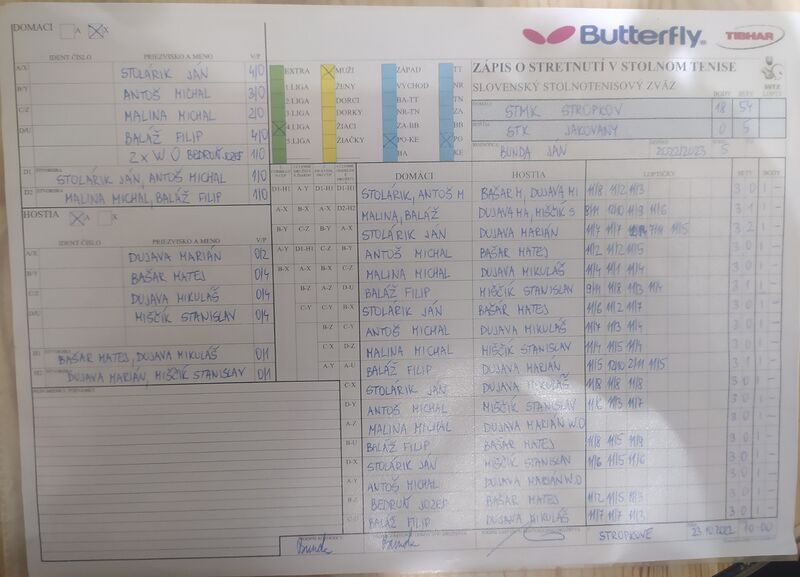 DOMACI A X
Butterfly
TIBHAR
IDENT ČÍSLO PRIEZVISKO A MENO V/P
A/X STOLÁRIK JÁN 4/0
B/Y ANTOŠ MICHAL 3/0
C/Z MALINA MICHAL 2/0
D/U BALÁŽ FILIP 4/0
2x W O BEDRUŇ JOZEF 1/0
D1 STOLÁRIK JÁN, ANTOŠ MICHAL 1/0
D2 MALINA MICHAL, BALÁŽ FILIP 1/0
EXTRA MUŽI ZÁPAD TT
1.LIGA ŽENY VÝCHOD NR
2.LIGA DORCI BA-TT TN
3.LIGA DORKY NR-TN ZA
4.LIGA ŽIACI ZA-BB BB
5.LIGA ŽIAČKY PO-KE PO
BA KE
ZÁPIS O STRETNUTÍ V STOLNOM TENISE
SLOVENSKÝ STOLNOTENISOVÝ ZVÄZ
BODY SETY LOPTY
STMK STROPKOV 18 54
STK JAKOVANY 0 5
BUNDA JÁN 2022/2023 5
HOSTIA A X
IDENT ČÍSLO PRIEZVISKO A MENO V/P
A/X DUJAVA MARIÁN 0/2
B/Y BAŠAR MATEJ 0/4
C/Z DUJAVA MIKULÁŠ 0/4
D/U MIŠČÍK STANISLAV 0/4
BAŠAR MATEJ, DUJAVA MIKULÁŠ 0/1
DUJAVA MARIÁN, MIŠČÍK STANISLAV 0/1
DOMÁCI HOSTIA LOPTIČKY SETY BODY
STOLÁRIK, ANTOŠ M BAŠAR M, DUJAVA MI 11/8 11/2 11/3 3 0 1 -
MALINA, BALÁŽ DUJAVA MA, MIŠČÍK S 3 1 1 -
STOLÁRIK JÁN DUJAVA MARIÁN 3 2 1 -
ANTOŠ MICHAL BAŠAR MATEJ 11/2 11/2 11/5 3 0 1 -
MALINA MICHAL DUJAVA MIKULÁŠ 11/4 11/1 11/4 3 0 1 -
BALÁŽ FILIP MIŠČÍK STANISLAV 9/11 11/8 11/3 11/4 3 1 1 -
STOLÁRIK JÁN BAŠAR MATEJ 11/6 11/2 11/7 3 0 1 -
ANTOŠ MICHAL DUJAVA MIKULÁŠ 11/7 11/3 11/4 3 0 1 -
MALINA MICHAL MIŠČÍK STANISLAV 11/4 11/5 11/4 3 0 1 -
BALÁŽ FILIP DUJAVA MARIÁN 11/5 12/10 2/11 11/5 3 1 1 -
STOLÁRIK JÁN DUJAVA MIKULÁŠ 11/8 11/8 11/8 3 0 1 -
ANTOŠ MICHAL MIŠČÍK STANISLAV 11/6 11/3 11/7 3 0 1 -
MALINA MICHAL DUJAVA MARIÁN W.O 3 0 1 -
BALÁŽ FILIP BAŠAR MATEJ 11/8 11/5 11/9 3 0 1 -
STOLÁRIK JÁN MIŠČÍK STANISLAV 11/6 11/5 11/6 3 0 1 -
ANTOŠ MICHAL DUJAVA MARIAN W.O 3 0 1 -
BEDRUŇ JOZEF BAŠAR MATEJ 11/2 11/5 11/3 3 0 1 -
BALÁŽ FILIP DUJAVA MIKULÁŠ 11/7 11/7 11/3 3 0 1 -
Bunda Bunda STROPKOVE 23.10.2022 10:00